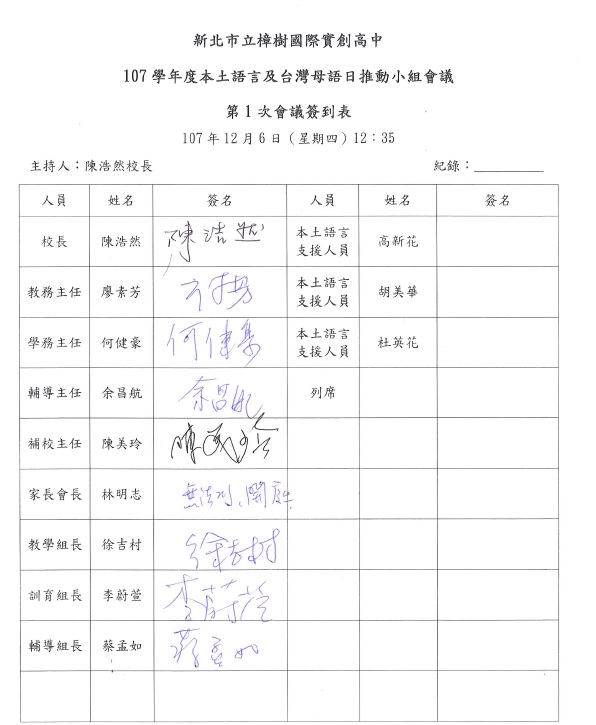 新北市立樟樹國際實創高中
107 學年度本土語言及台灣母語日推動小組會議
第 1 次會議簽到表
107 年 12 月 6 日（星期四）12：35
主持人：陳浩然校長 紀錄：
人員 姓名 簽名 人員 姓名 簽名
校長 陳浩然 陳浩然 本土語言支援人員 高新花
教務主任 廖素芳 本土語言支援人員 胡美華
學務主任 何健豪 何健豪 本土語言支援人員 杜英花
輔導主任 余昌航 余昌航 列席
補校主任 陳美玲 陳美玲
家長會長 林明志
教學組長 徐吉村 徐吉村
訓育組長 李蔚萱 李蔚萱
輔導組長 蔡孟如 蔡孟如